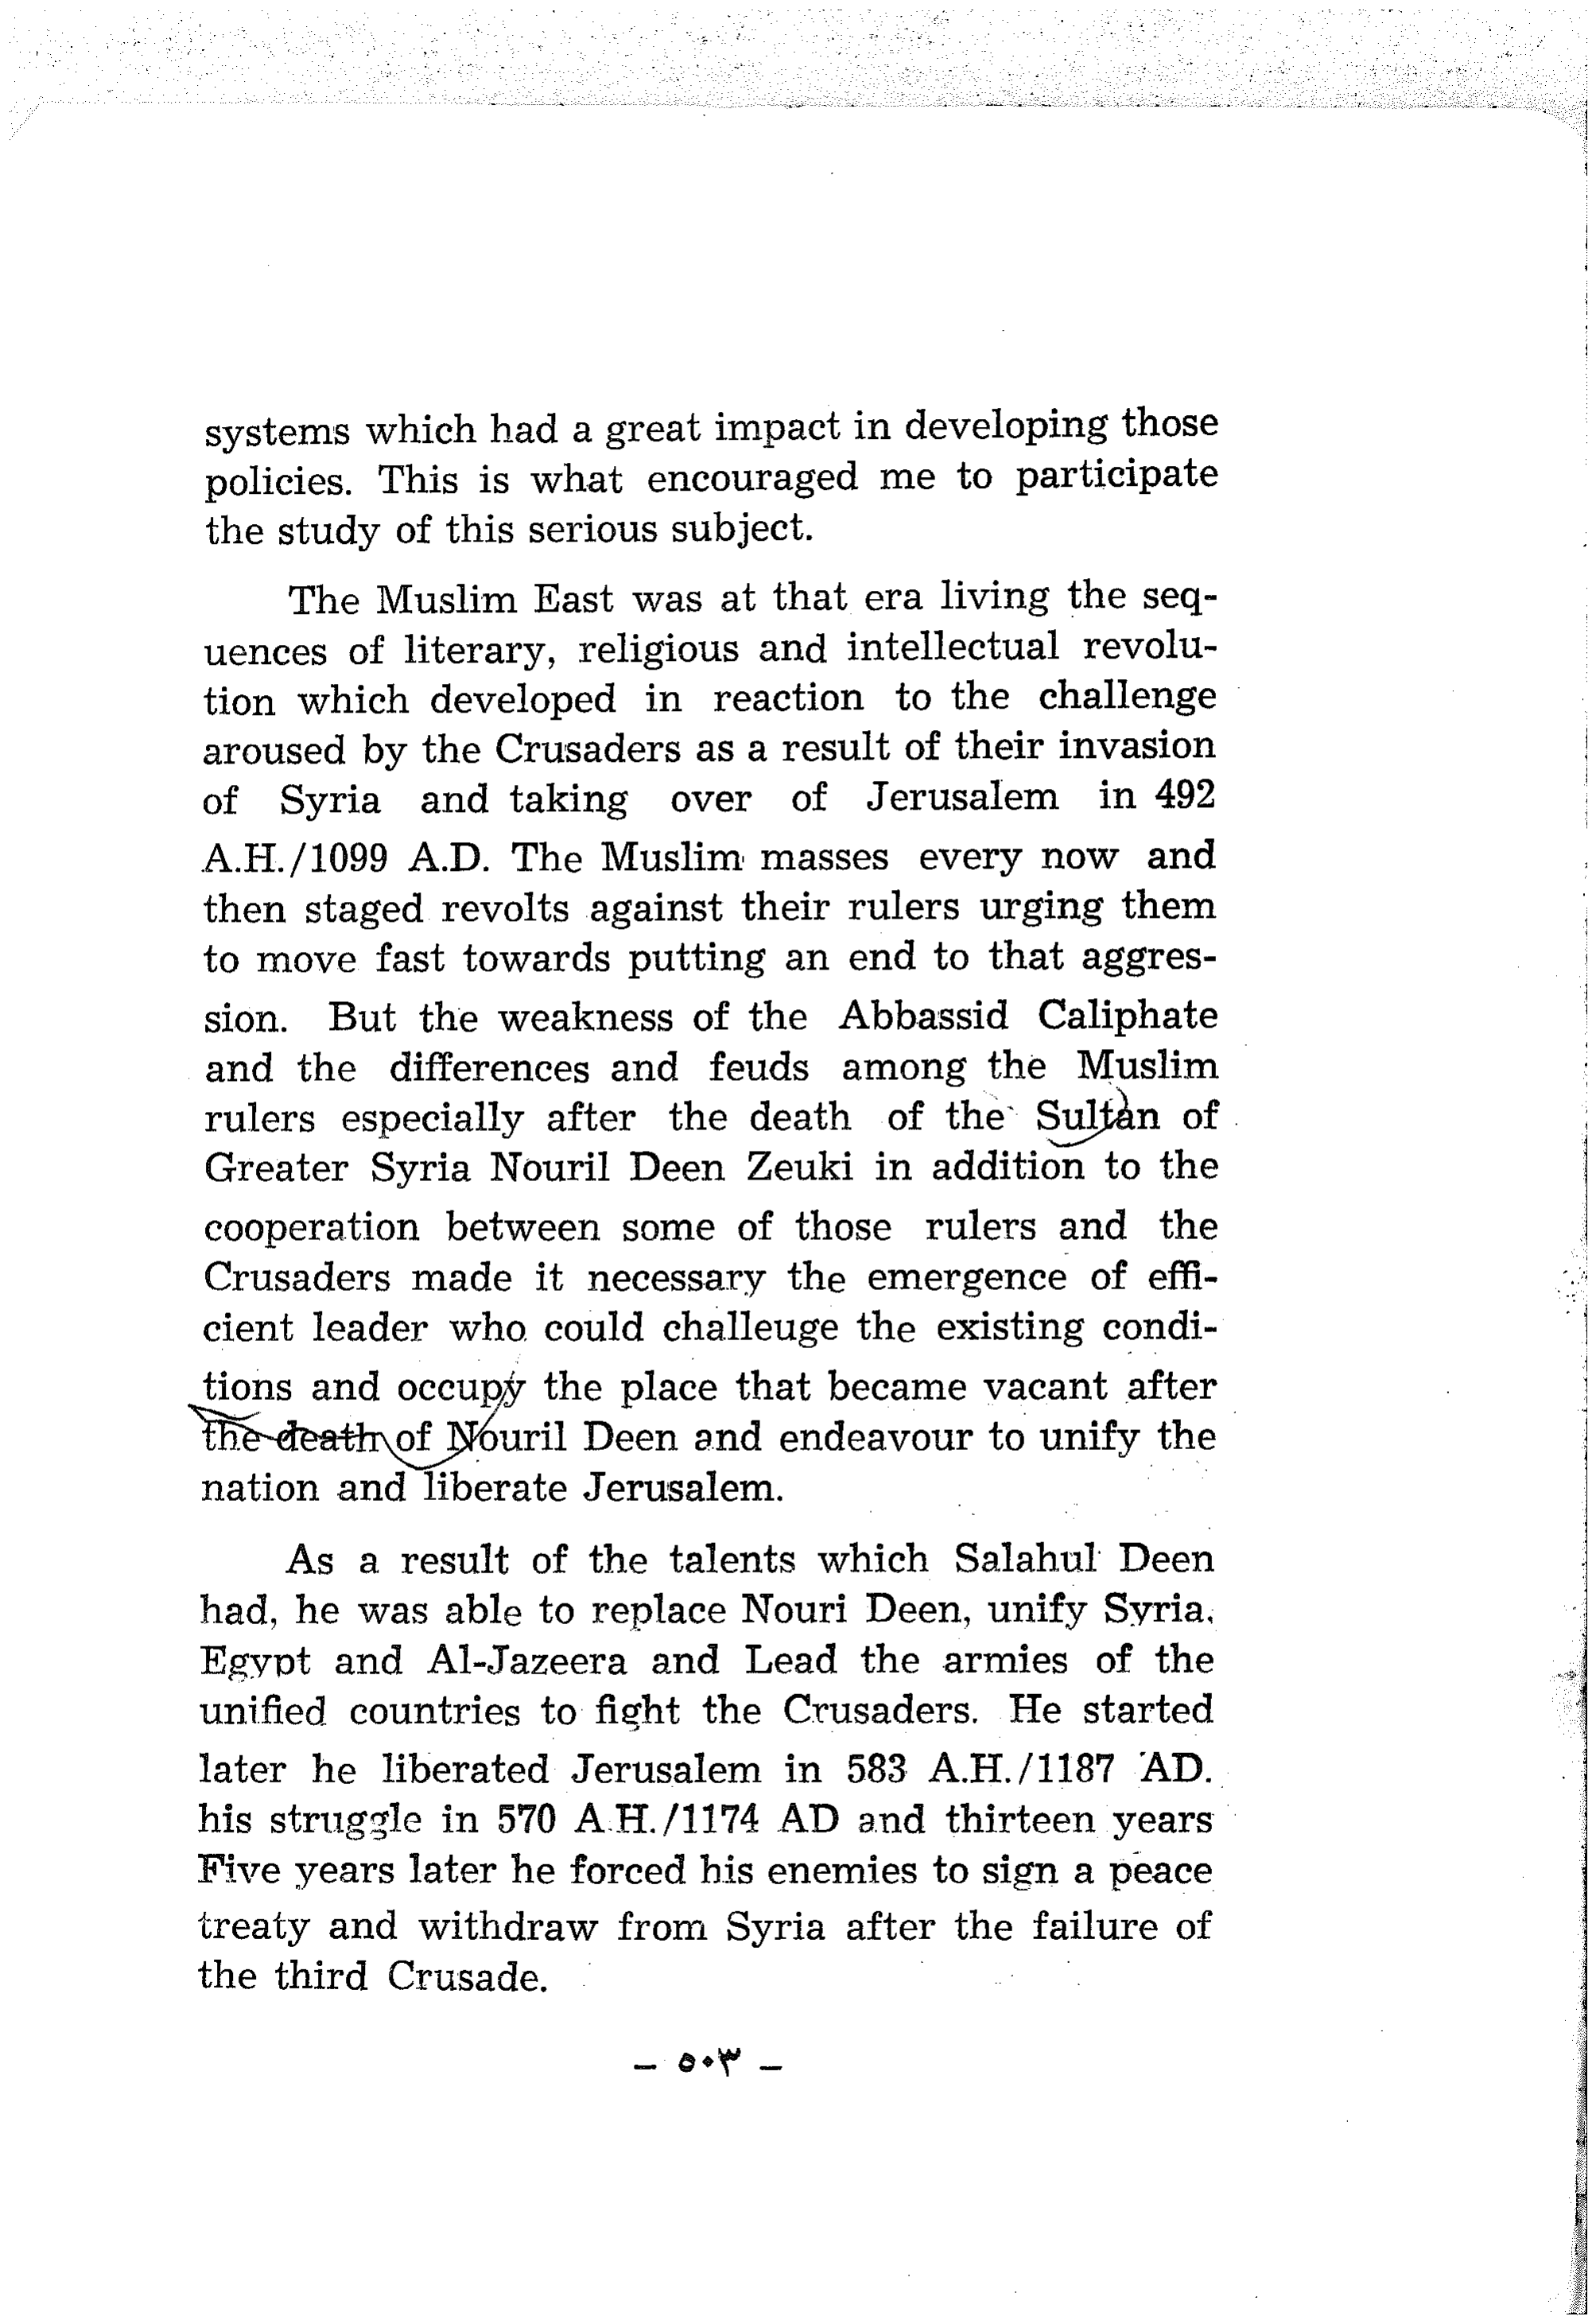 systems which had a great impact in developing those
policies. This is what encouraged me to participate
the study of this serious subject.
The Muslim East was at that era living the seq-
uences of literary, religious and intellectual revolu-
tion which developed in reaction to the challenge
aroused by the Crusaders as a result of their invasion
of Syria and taking over of Jerusalem in 492
A.H./1099 A.D. The Muslim masses every now and
then staged revolts against their rulers urging them
to move fast towards putting an end to that aggres-
sion. But the weakness of the Abbassid Caliphate
and the differences and feuds among the Muslim
rulers especially after the death of the Sultan of
Greater Syria Nouril Deen Zeuki in addition to the
cooperation between some of those rulers and the
Crusaders made it necessary the emergence of effi-
cient leader who could challeuge the existing condi-
tions and occupy the place that became vacant after
the death of Nouril Deen and endeavour to unify the
nation and liberate Jerusalem.
As a result of the talents which Salahul Deen
had, he was able to replace Nouri Deen, unify Syria,
Egypt and Al-Jazeera and Lead the armies of the
unified countries to fight the Crusaders. He started
later he liberated Jerusalem in 583 A.H./1187 AD.
his struggle in 570 A.H./1174 AD and thirteen years
Five years later he forced his enemies to sign a peace
treaty and withdraw from Syria after the failure of
the third Crusade.
– ٥٠٣ –